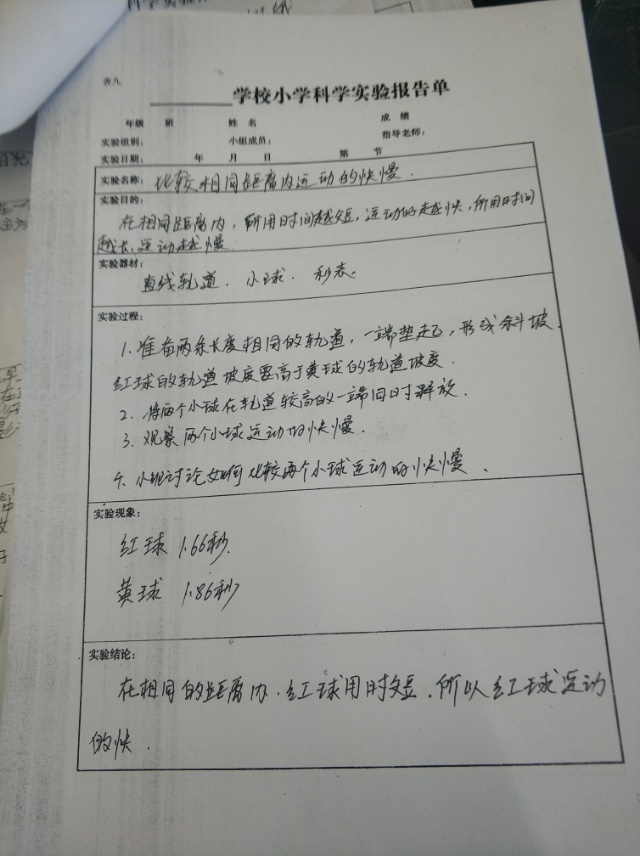 表九
学校小学科学实验报告单
年级 班 姓名 成绩
实验组别: 小组成员: 指导老师:
实验日期: 年 月 日 第 节
实验名称: 比较相同距离内运动的快慢.
实验目的:
在相同距离内,所用时间越短,运动的越快,所用时间
越长,运动越慢
实验器材:
直线轨道. 小球. 秒表.
实验过程:
1. 准备两条长度相同的轨道,一端垫起,形成斜坡.
红球的轨道坡度要高于黄球的轨道坡度.
2. 将两个小球在轨道较高的一端同时释放.
3. 观察两个小球运动的快慢.
4. 小组讨论如何比较两个小球运动的快慢.
实验现象:
红球 1.66秒.
黄球 1.86秒
实验结论:
在相同的距离内.红球用时短.所以红球运动
的快.